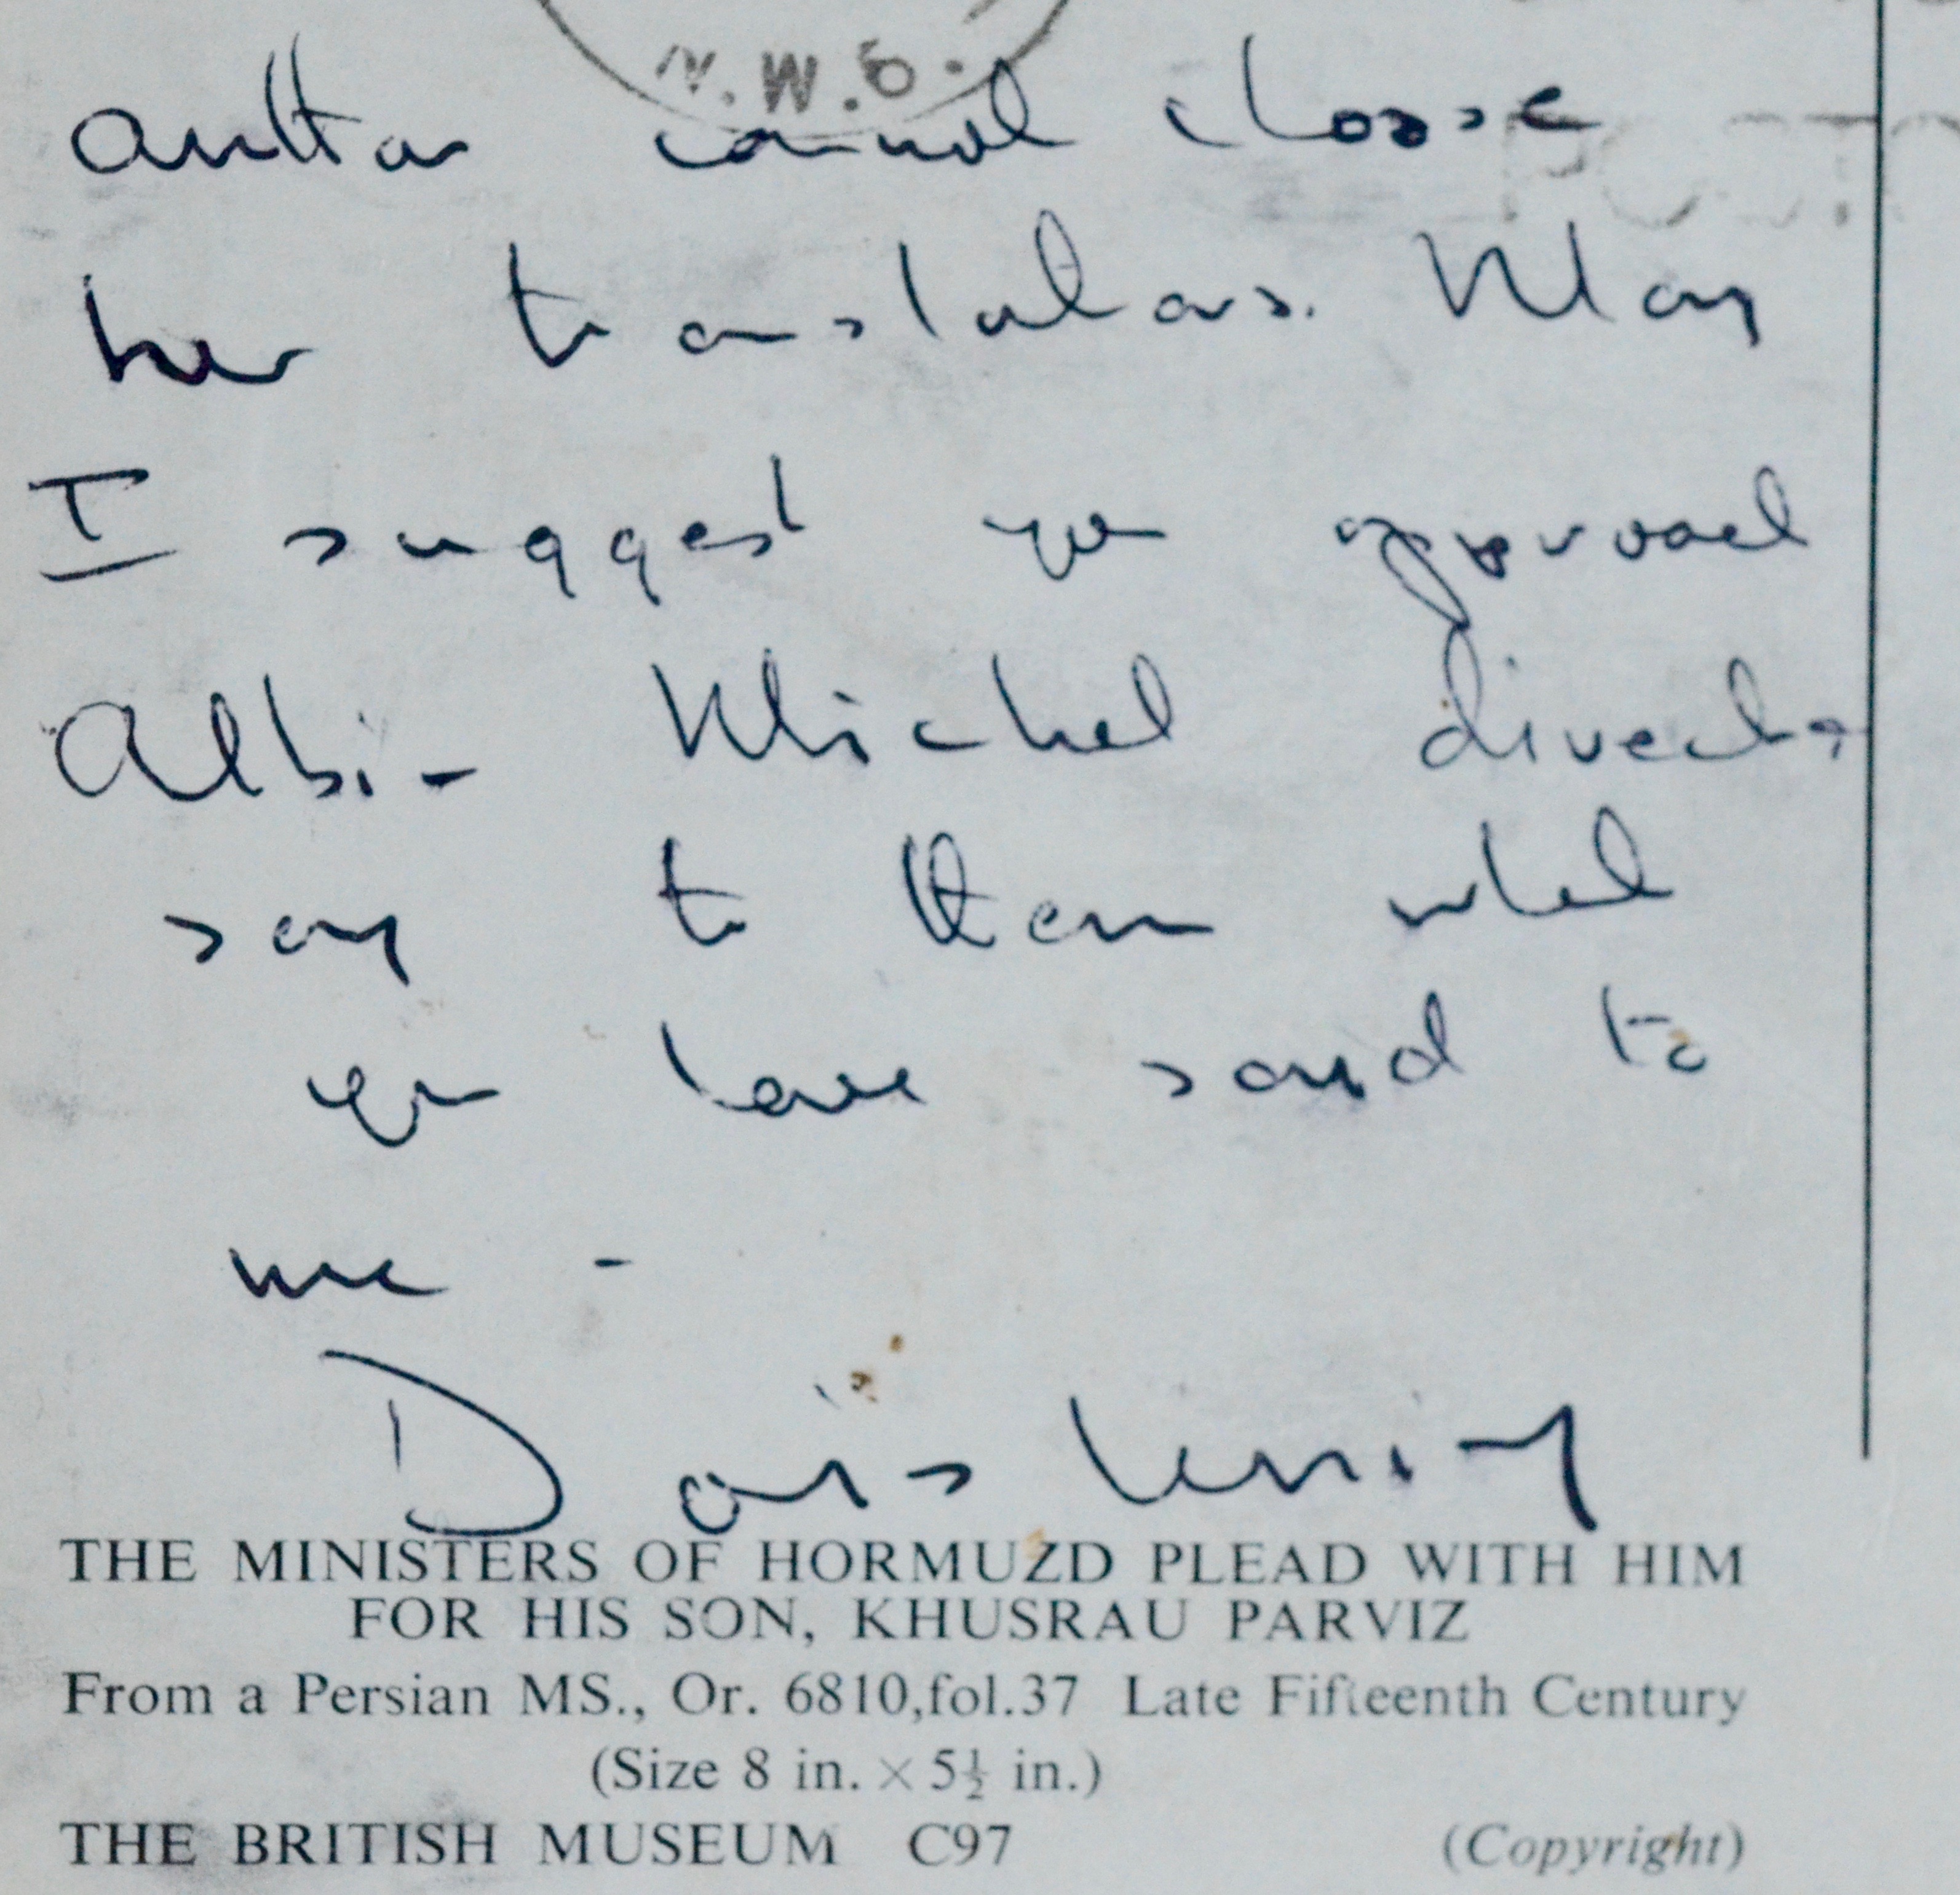 N.W.6.
author cannot choose
her translators. May
I suggest you approach
Albin Michel direct &
say to them what
you have said to
me -
Doris Lessing
THE MINISTERS OF HORMUZD PLEAD WITH HIM
FOR HIS SON, KHUSRAU PARVIZ
From a Persian MS., Or. 6810,fol.37 Late Fifteenth Century
(Size 8 in. × 5½ in.)
THE BRITISH MUSEUM C97 (Copyright)